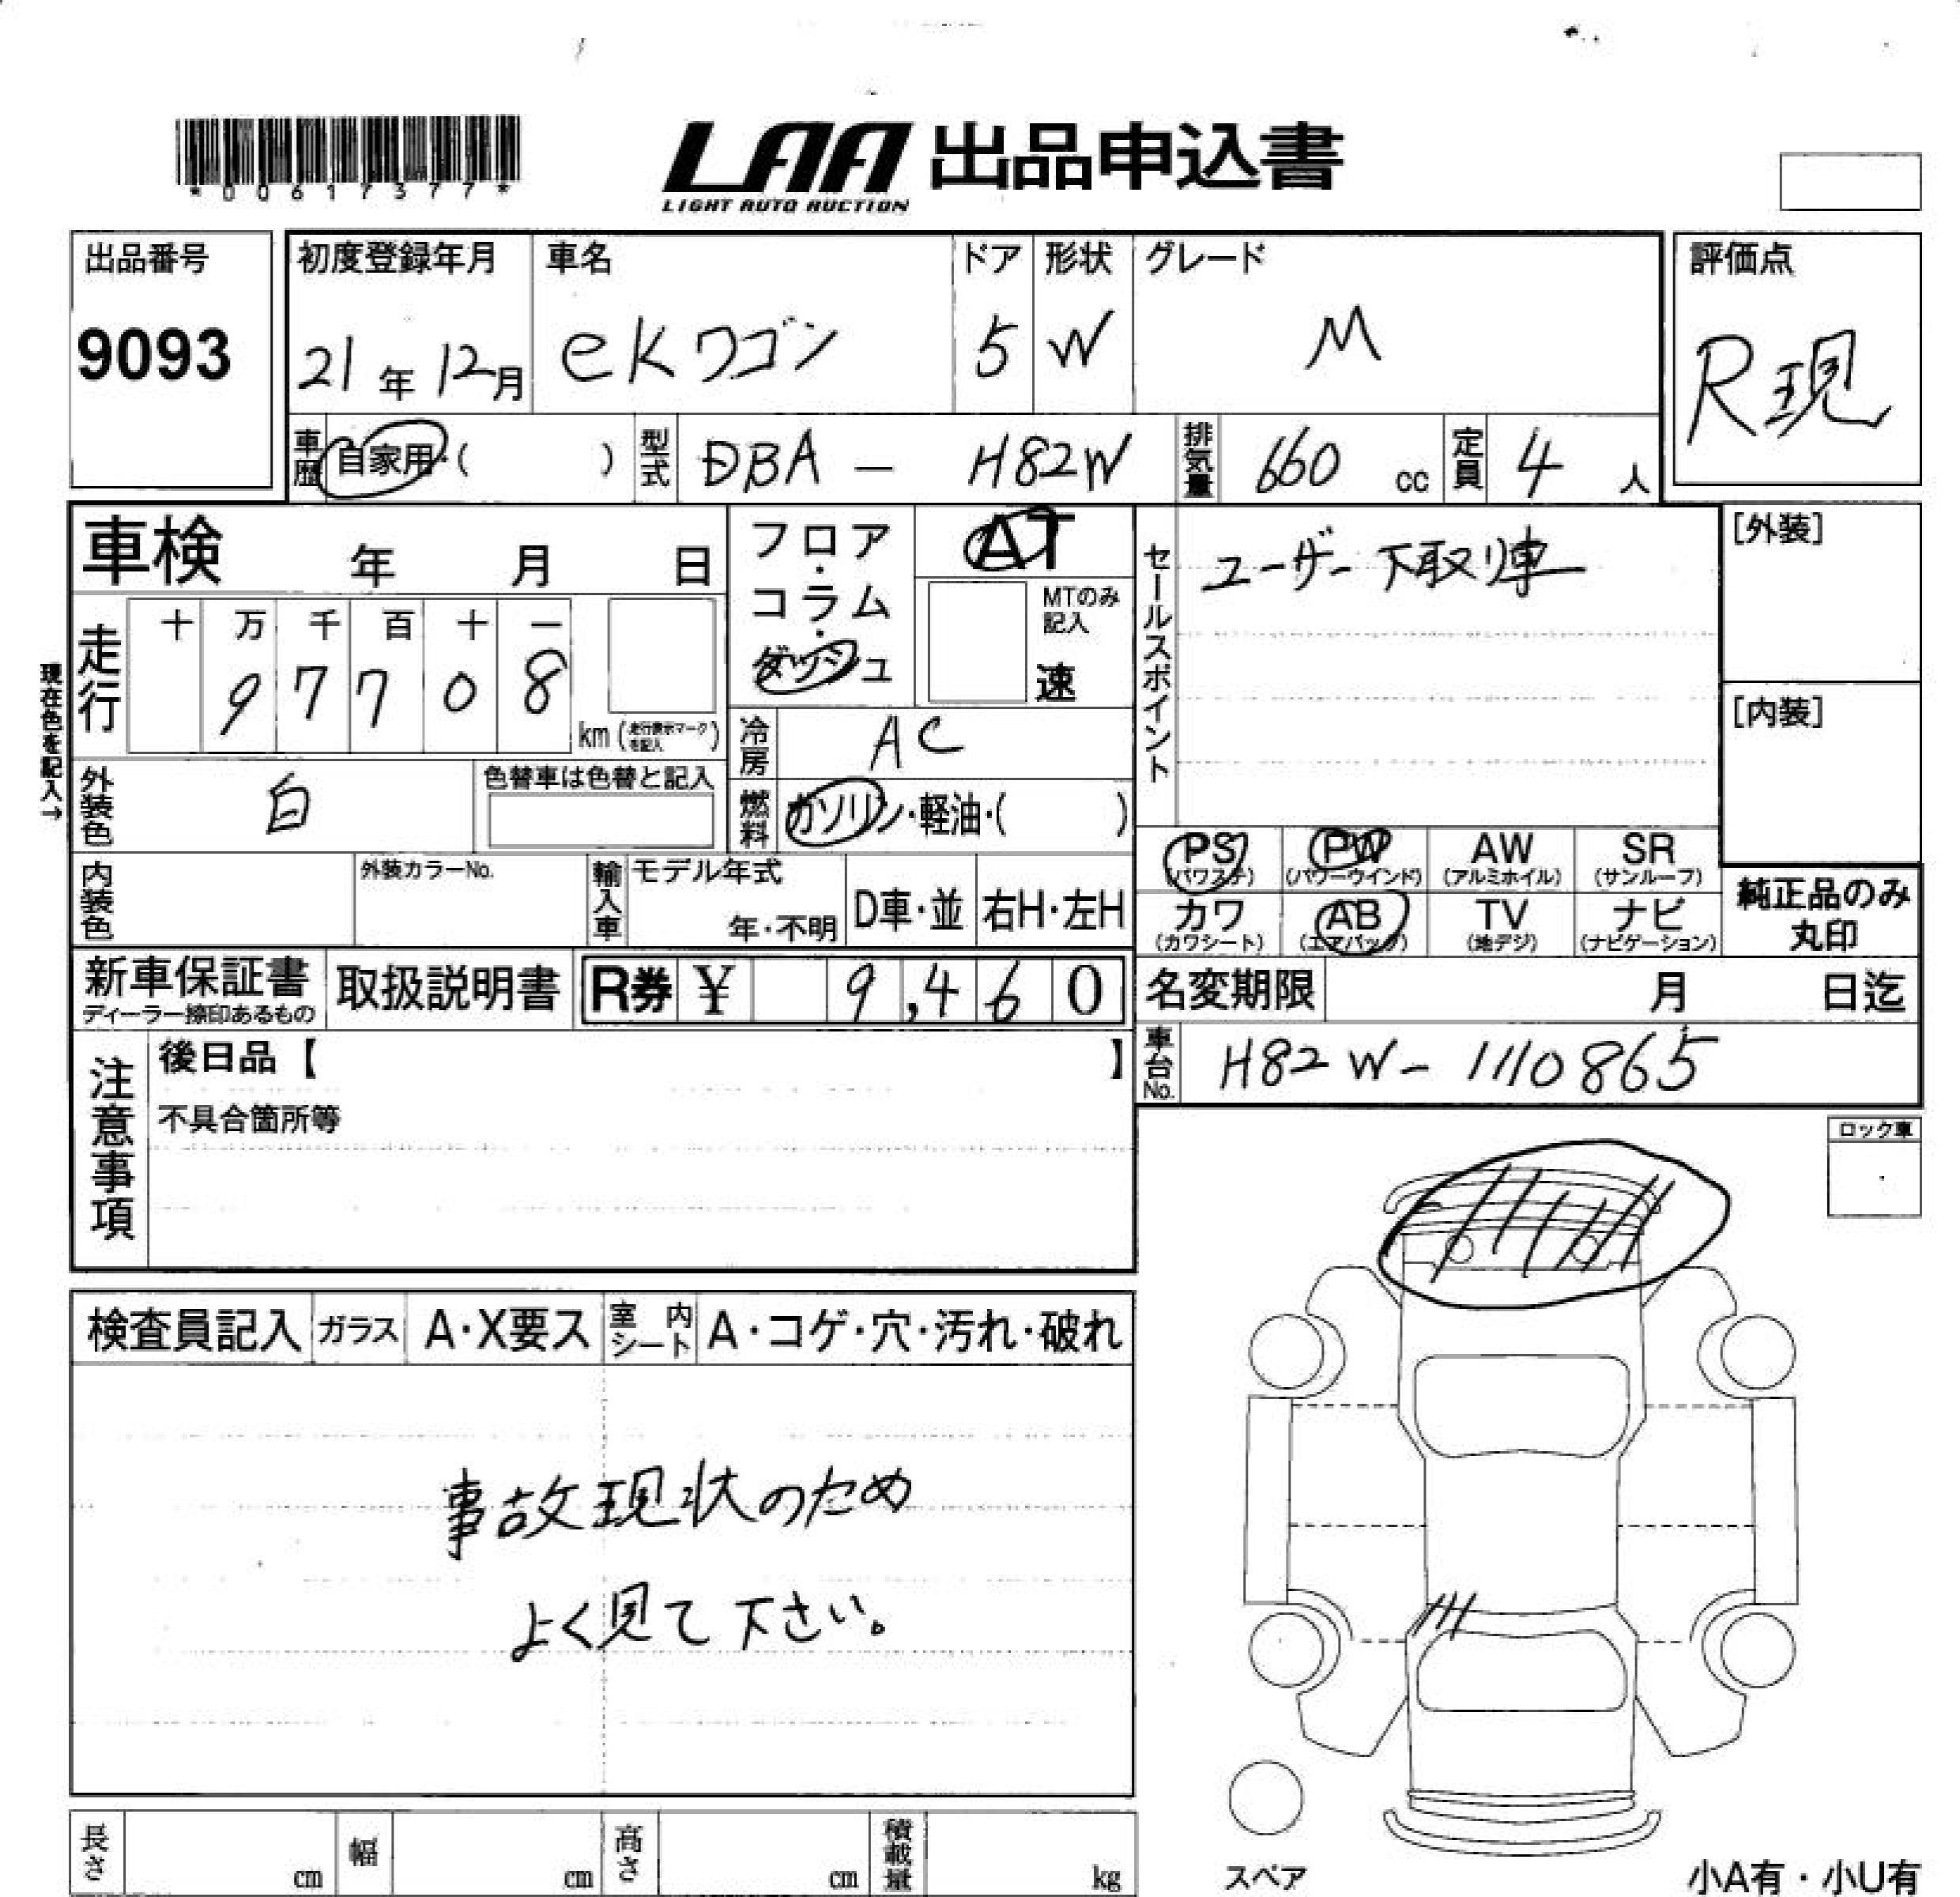 *00617377*
LAA 出品申込書
LIGHT AUTO AUCTION
出品番号
9093
初度登録年月
21年12月
車名
eKワゴン
ドア
5
形状
W
グレード
M
評価点
R現
車歴
自家用・( )
型式
DBA - H82W
排気量
660 cc
定員
4 人
車検 年 月 日
フロア・コラム・ダッシュ
AT
MTのみ記入
速
現在色を記入→
走行
十 万 千 百 十 一
9 7 7 0 8
km (走行表示マークを記入)
冷房
AC
外装色
白
色替車は色替と記入
燃料
ガソリン・軽油・( )
内装色
外装カラーNo.
輸入車
モデル年式
年・不明
D車・並
右H・左H
セールスポイント
ユーザー下取り車
[外装]
[内装]
PS (パワステ)
PW (パワーウインド)
AW (アルミホイル)
SR (サンルーフ)
カワ (カワシート)
AB (エアバッグ)
TV (地デジ)
ナビ (ナビゲーション)
純正品のみ
丸印
新車保証書
ディーラー捺印あるもの
取扱説明書
R券 ¥ 9,460
名変期限 月 日迄
車台No.
H82W-1110865
注意事項
後日品【 】
不具合箇所等
ロック車
検査員記入
ガラス
A・X要ス
室内シート
A・コゲ・穴・汚れ・破れ
事故現状のため
よく見て下さい。
長さ cm
幅 cm
高さ cm
積載量 kg
スペア
小A有・小U有